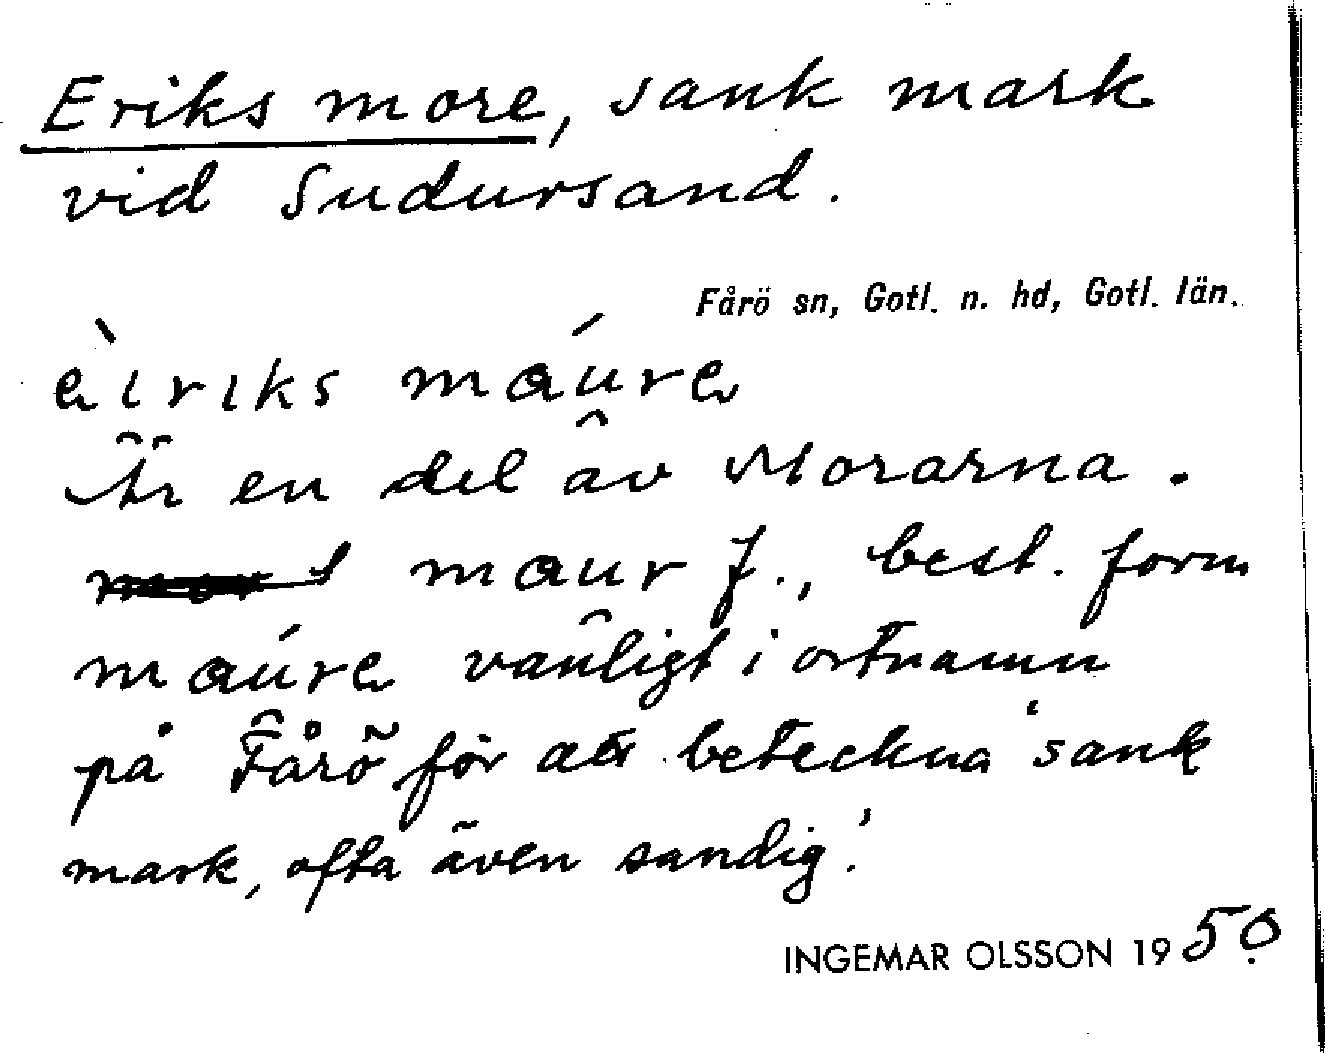 Eriks more, sank mark
vid Sudursand.
Fårö sn, Gotl. n. hd, Gotl. län.
èiriks máure
Är en del av Morarna.
maur f., best. form
máure vanligt i ortnamn
på Fårö för att beteckna 'sank
mark, ofta även sandig'.
INGEMAR OLSSON 1950.